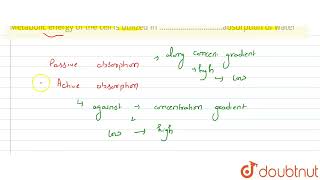 Metabolic energy of the cell is utilized in ........................ absorption of water
Passive absorption → along concen. gradient
high → low
Active absorption
↳ against → concentration gradient
low → high
doubtnut